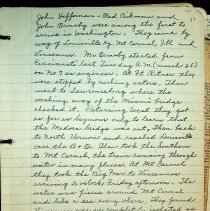 John Heffernan - Red Aikman and
John Ormsby were among the first to
arrive in Washington. They came by
way of Louisville, Mt Carmel, Ill and
Vincennes. Mr Ormsby started from
Cincinnati last Tuesday A M (March 25)
on No 7 as engineer. At Ft Ritner they
were stopped by raking waters. Then
went to Lawrenceburg where the
washing away of the Miami bridge
checked it. Returning west they got
as far as Seymour only to learn that
the Medora bridge was out, then back
to North Vernon and reached Louisville
over the B & O. Then took the Southern
to Mt Carmel, the train running through
water in many places. At Mt Carmel
they took the Big Four to Vincennes
arriving 2 o'clock Friday afternoon. The
water was fierce around Mt Carmel
and like a sea every where. They found